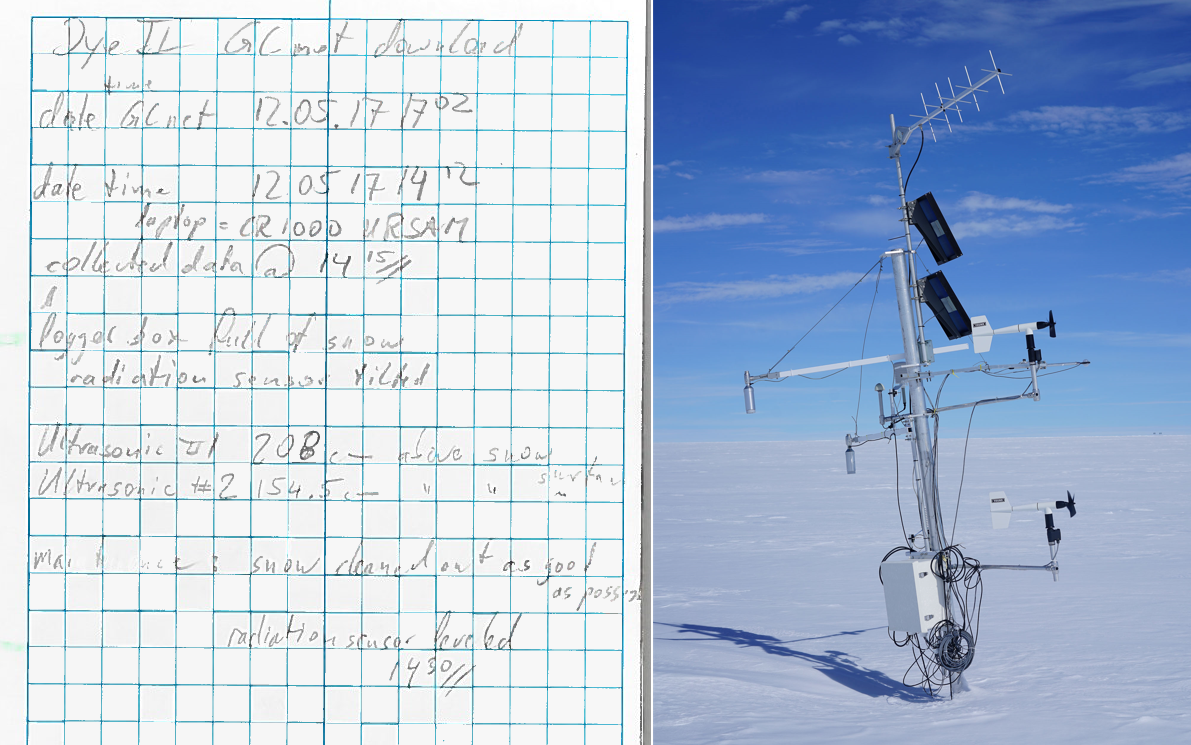 Dye II GCnet download
time
date GCnet 12.05.17 17 02
date time 12 05 17 14 12
laptop = CR1000 URSAM
collected data @ 14 15
logger box full of snow
radiation sensor tilted
Ultrasonic #1 208 c— above snow
surface
Ultrasonic #2 154.5 c— " " "
maintenance : snow cleaned out as good
as possi
radiation sensor leveled
14 30